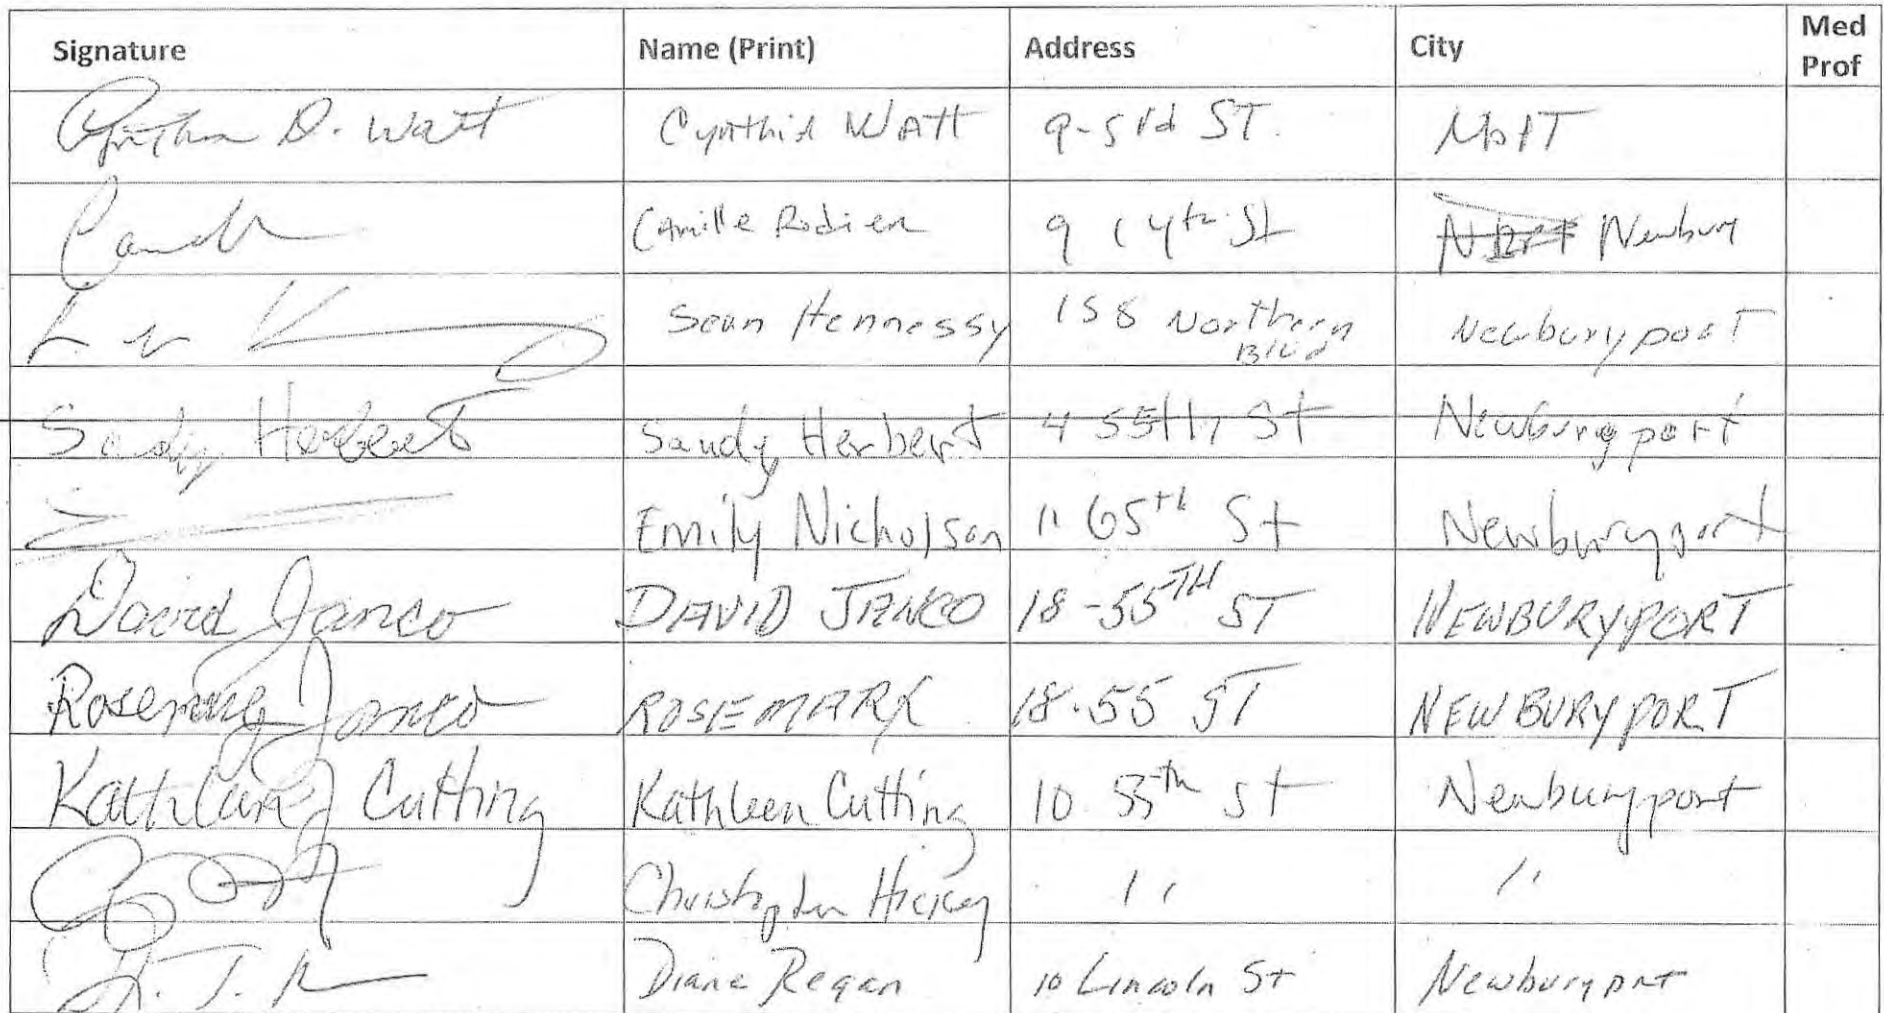 Signature Name (Print) Address City Med Prof
Cynthia D. Watt Cynthia Watt 9-53rd ST.
Camille Rodier 9 14th St Newbury
Sean Hennessy 158 Northern Blvd Newburyport
Sandy Herbert Sandy Herbert 4 55th St Newburyport
Emily Nicholson 11 65th St Newburyport
David Janco DAVID JANCO 18-55TH ST NEWBURYPORT
Rosemary Janco ROSEMARY 18-55 ST NEWBURYPORT
Kathleen Cutting Kathleen Cutting 10 55th St Newburyport
Christopher Hickey " "
Diane Regan 10 Lincoln St Newburyport